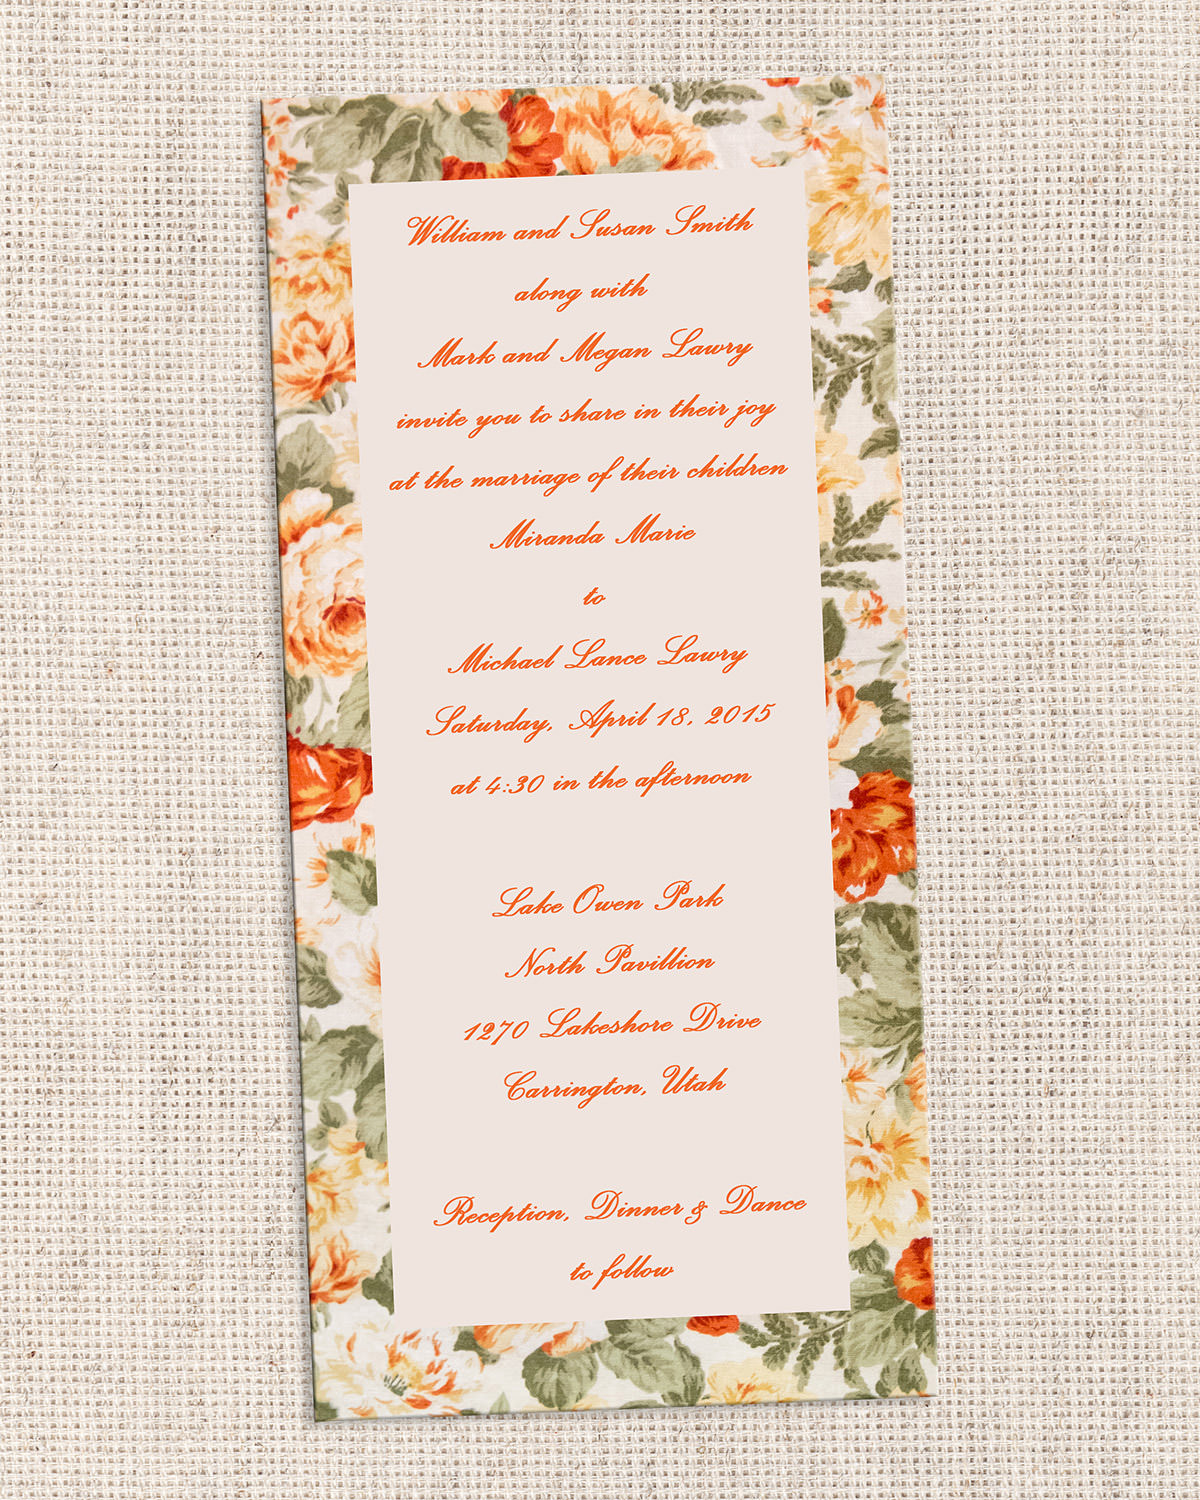 William and Susan Smith
along with
Mark and Megan Lawry
invite you to share in their joy
at the marriage of their children
Miranda Marie
to
Michael Lance Lawry
Saturday, April 18, 2015
at 4:30 in the afternoon
Lake Owen Park
North Pavillion
1270 Lakeshore Drive
Carrington, Utah
Reception, Dinner & Dance
to follow